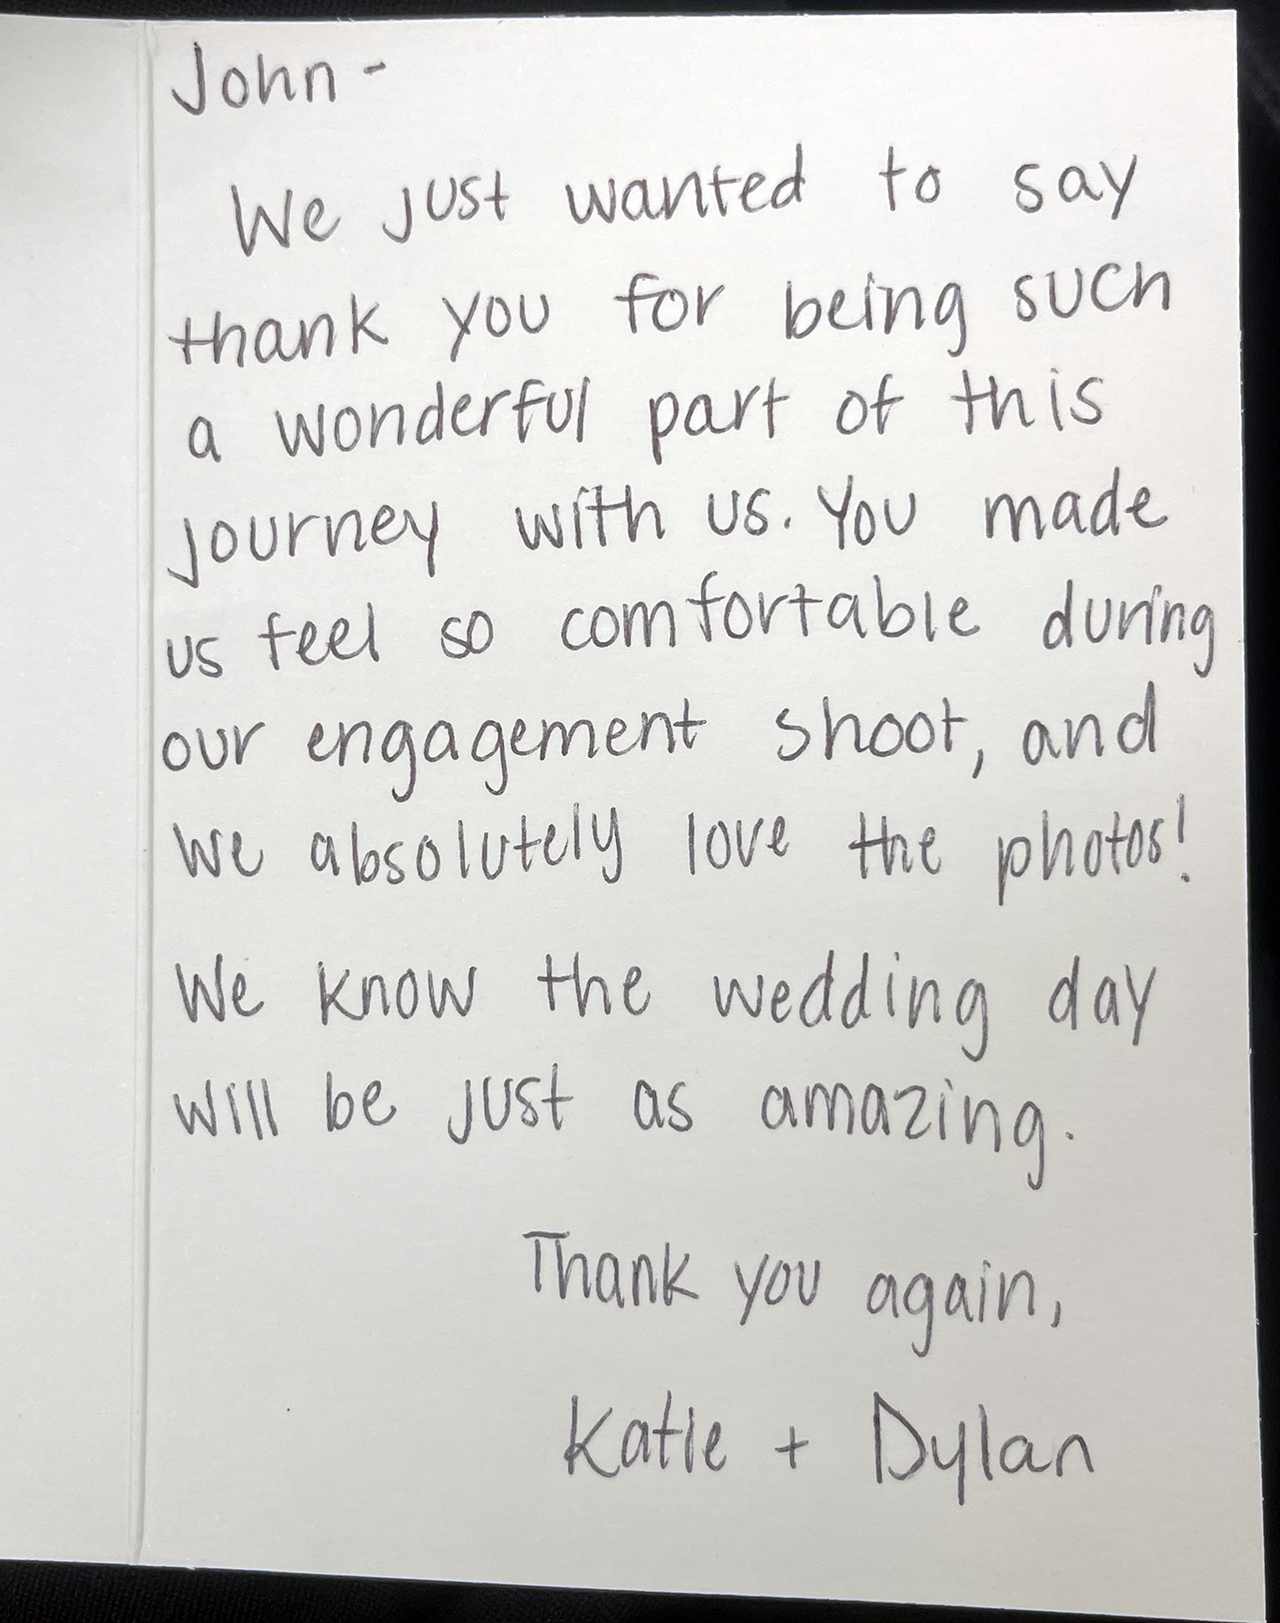 John -
We just wanted to say
thank you for being such
a wonderful part of this
journey with us. You made
us feel so comfortable during
our engagement shoot, and
we absolutely love the photos!
We know the wedding day
will be just as amazing.
Thank you again,
Katie + Dylan